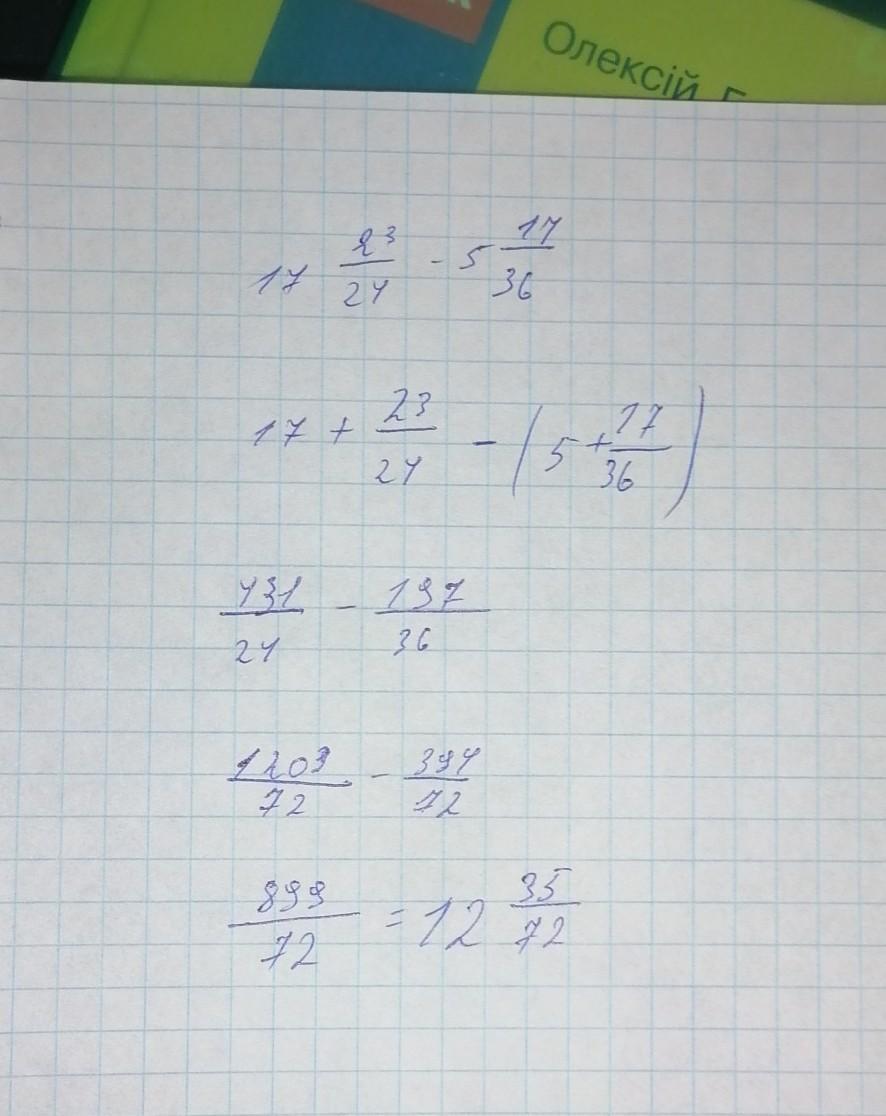 Олексій
17 23/24 - 5 17/36
17 + 23/24 - (5 + 17/36)
431/24 - 197/36
1203/72 - 394/72
899/72 = 12 35/72